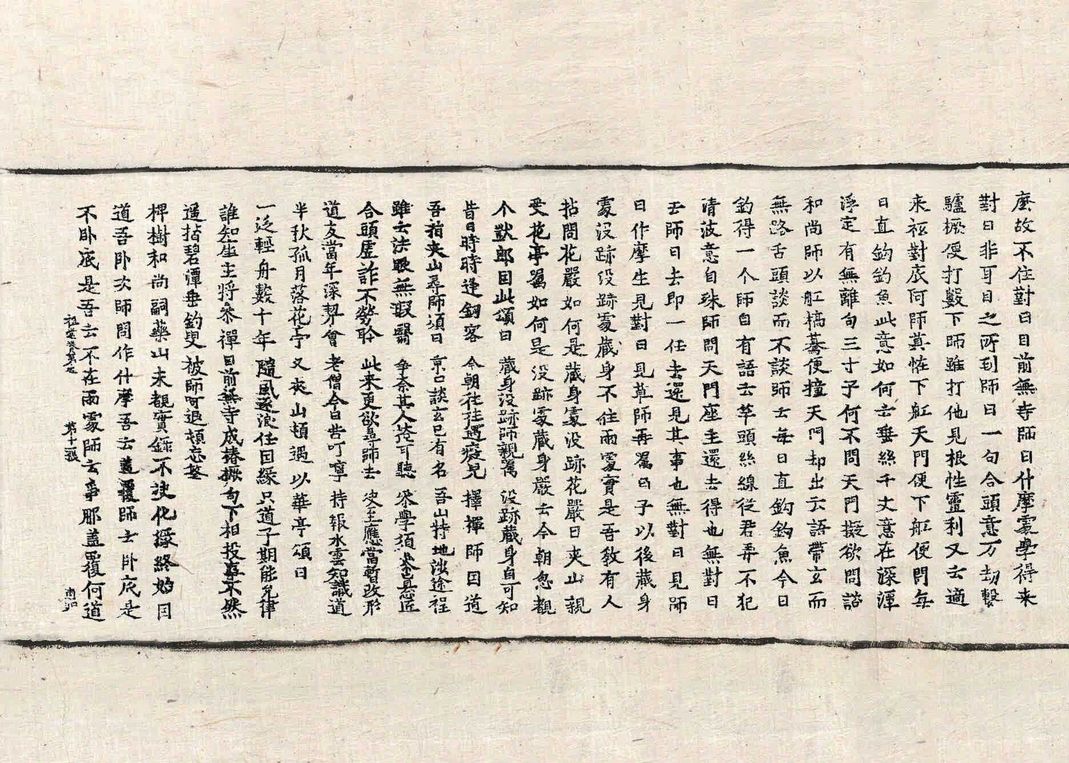 麼故不住對曰目前無寺師曰什摩處學得来
對曰非耳目之所到師曰一句合頭意万劫繫
驢橛便打數下師雖打他見根性靈利又云適
来祗對底阿師莫恠下舡天門便下舡便問每
日直鈎釣魚此意如何云垂絲千丈意在深潭
浮定有無離句三寸子何不問天門擬欲問諮
和尚師以舡槁驀便撞天門却出云語帶玄而
無路舌頭談而不談師云每日直鈎釣魚今日
釣得一个師自有語云竿頭絲線従君弄不犯
清波意自殊師問天門座主還去得也無對曰
去師曰去即一任去還見其事也無對曰見師
曰作摩生見對曰見草師再囑曰子以後蔵身
處没跡没跡處蔵身不住兩處實是吾教有人
拈問花嚴如何是蔵身處没跡花嚴曰夾山親
受花亭囑如何是没跡處蔵身嚴云今朝忽覩
个獃郎因此頌曰 蔵身没跡師親囑 没跡蔵身自可知
昔日時時逢劔客 今朝往往遇癡兒 擇禪師因道
吾指夾山尋師頌曰 京口談玄已有名 吾山特地涉途程
雖云法眼無瑕翳 争奈其人笑耳聽 叅學須求真意匠
合頭虚詐不勞聆 此来更欲尋師去 決至應當暫改形
道友當年深契會 老僧今日苦叮嚀 持報水雲知識道
半秋孤月落花亭 又夾山頓遇以華亭頌曰
一泛輕舟數十年 隨風逐浪任因緣 只道子期能允律
誰知座主將叅禪 目前無寺成樁橛 句下相投事不然
遥指碧潭垂釣叟 被師呵退頓忘筌
椑樹和尚詞藥山未覩實錄不決化緣終始因
道吾卧次師問作什摩吾云蓋覆師云卧底是
不卧底是吾云不在兩處師云爭那蓋覆何道
祖堂集第五 第十一張